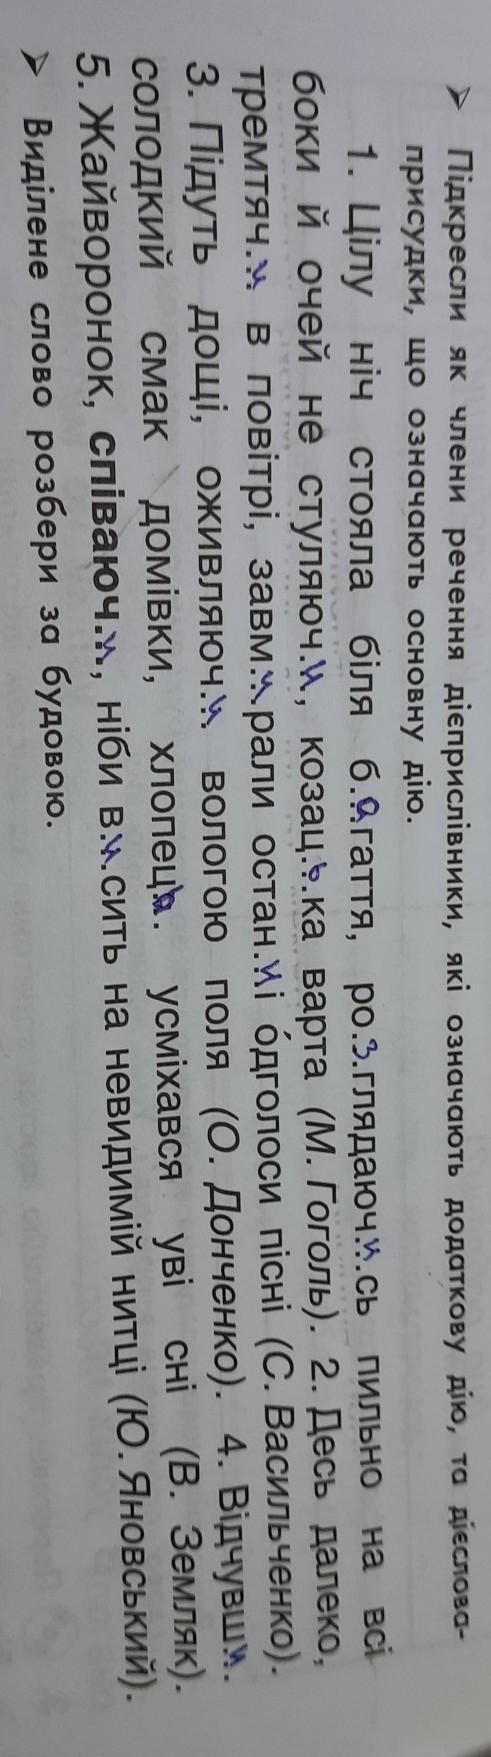 ➤ Підкресли як члени речення дієприслівники, які означають додаткову дію, та дієслова-
присудки, що означають основну дію.
1. Цілу ніч стояла біля б.а.гаття, ро.з.глядаюч.и.сь пильно на всі
боки й очей не стуляюч.и., козац.ь.ка варта (М. Гоголь). 2. Десь далеко,
тремтяч.и. в повітрі, завм.и.рали остан.н.і о́дголоси пісні (С. Васильченко).
3. Підуть дощі, оживляюч.и. вологою поля (О. Донченко). 4. Відчувш.и.
солодкий смак домівки, хлопец.ь. усміхався уві сні (В. Земляк).
5. Жайворонок, співаюч.и., ніби в.и.сить на невидимій нитці (Ю. Яновський).
➤ Виділене слово розбери за будовою.